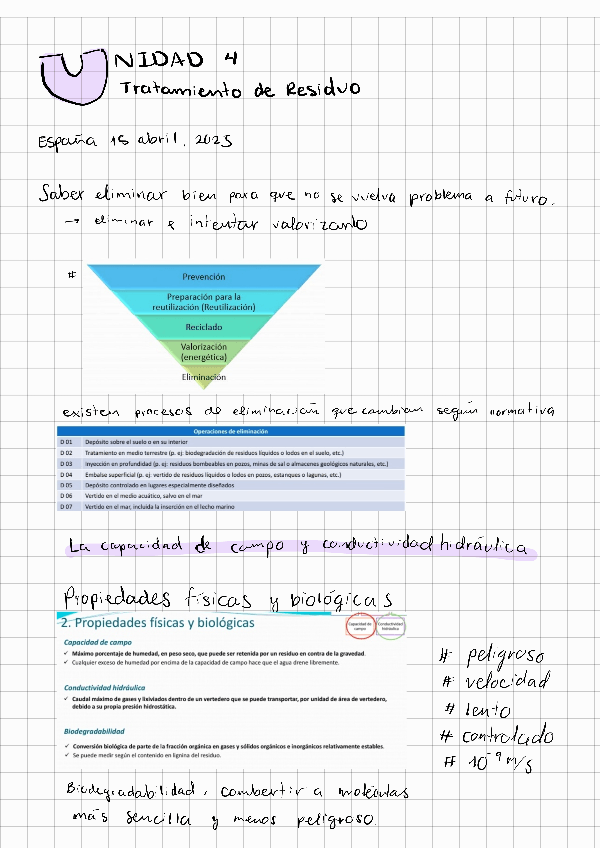 UNIDAD 4
Tratamiento de Residuo
España 15 abril, 2025
Saber eliminar bien para que no se vuelva problema a futuro.
→ eliminar e intentar valorizanto
#
Prevención
Preparación para la
reutilización (Reutilización)
Reciclado
Valorización
(energética)
Eliminación
existen procesos de eliminación que cambian según normativa
Operaciones de eliminación
D 01 Depósito sobre el suelo o en su interior
D 02 Tratamiento en medio terrestre (p. ej: biodegradación de residuos líquidos o lodos en el suelo, etc.)
D 03 Inyección en profundidad (p. ej: residuos bombeables en pozos, minas de sal o almacenes geológicos naturales, etc.)
D 04 Embalse superficial (p. ej: vertido de residuos líquidos o lodos en pozos, estanques o lagunas, etc.)
D 05 Depósito controlado en lugares especialmente diseñados
D 06 Vertido en el medio acuático, salvo en el mar
D 07 Vertido en el mar, incluida la inserción en el lecho marino
La capacidad de campo y conductividad hidráulica
Propiedades físicas y biológicas
2. Propiedades físicas y biológicas
Capacidad de
campo
Conductividad
hidráulica
Capacidad de campo
✓ Máximo porcentaje de humedad, en peso seco, que puede ser retenida por un residuo en contra de la gravedad.
✓ Cualquier exceso de humedad por encima de la capacidad de campo hace que el agua drene libremente.
Conductividad hidráulica
✓ Caudal máximo de gases y lixiviados dentro de un vertedero que se puede transportar, por unidad de área de vertedero,
debido a su propia presión hidrostática.
Biodegradabilidad
✓ Conversión biológica de parte de la fracción orgánica en gases y sólidos orgánicos e inorgánicos relativamente estables.
✓ Se puede medir según el contenido en lignina del residuo.
# peligroso
# velocidad
# lento
# controlado
# 10⁻⁹ m/s
Biodegradabilidad, combertir a moléculas
más sencilla y menos peligroso.